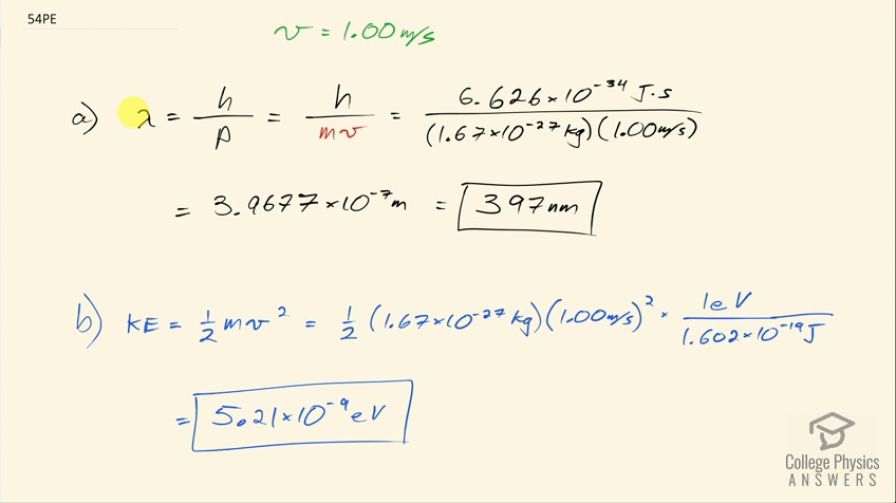 54PE
v = 1.00 m/s
a) λ = h/p = h/mv = 6.626×10⁻³⁴ J·s / (1.67×10⁻²⁷ kg)(1.00 m/s)
= 3.9677×10⁻⁷ m = 397 nm
b) KE = 1/2 mv² = 1/2 (1.67×10⁻²⁷ kg)(1.00 m/s)² · 1eV / 1.602×10⁻¹⁹ J
= 5.21×10⁻⁹ eV
College Physics
ANSWERS